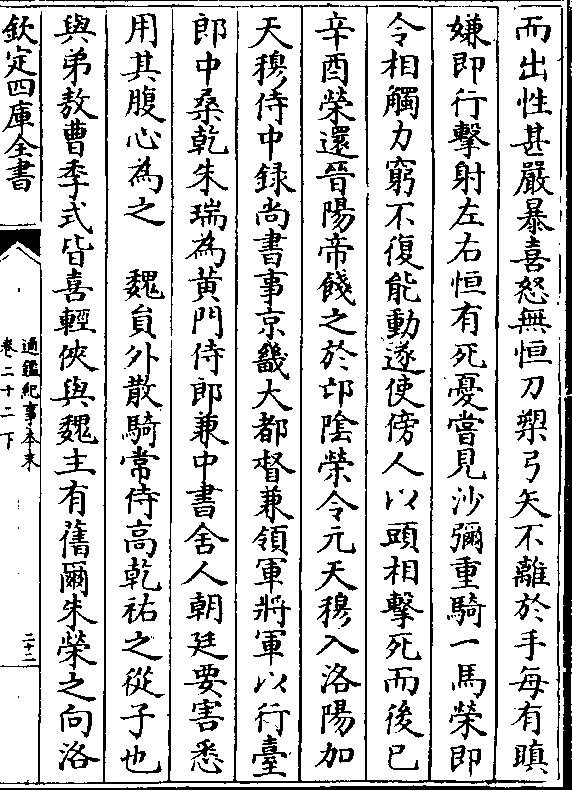 而出性甚嚴暴喜怒無恒刀槊弓矢不離於手每有瞋
嫌即行擊射左右恒有死憂嘗見沙彌重騎一馬榮即
令相觸力窮不復能動遂使傍人以頭相擊死而後已
辛酉榮還晉陽帝餞之於邙陰榮令元天穆入洛陽加
天穆侍中録尚書事京畿大都督兼領軍將軍以行臺
郎中桑乾朱瑞為黄門侍郎兼中書舍人朝廷要害悉
用其腹心為之　魏員外散騎常侍高乾祐之從子也
與弟敖曹季式皆喜輕俠與魏主有舊爾朱榮之向洛
欽定四庫全書
通鑑紀事本末
卷二十二下
二十二